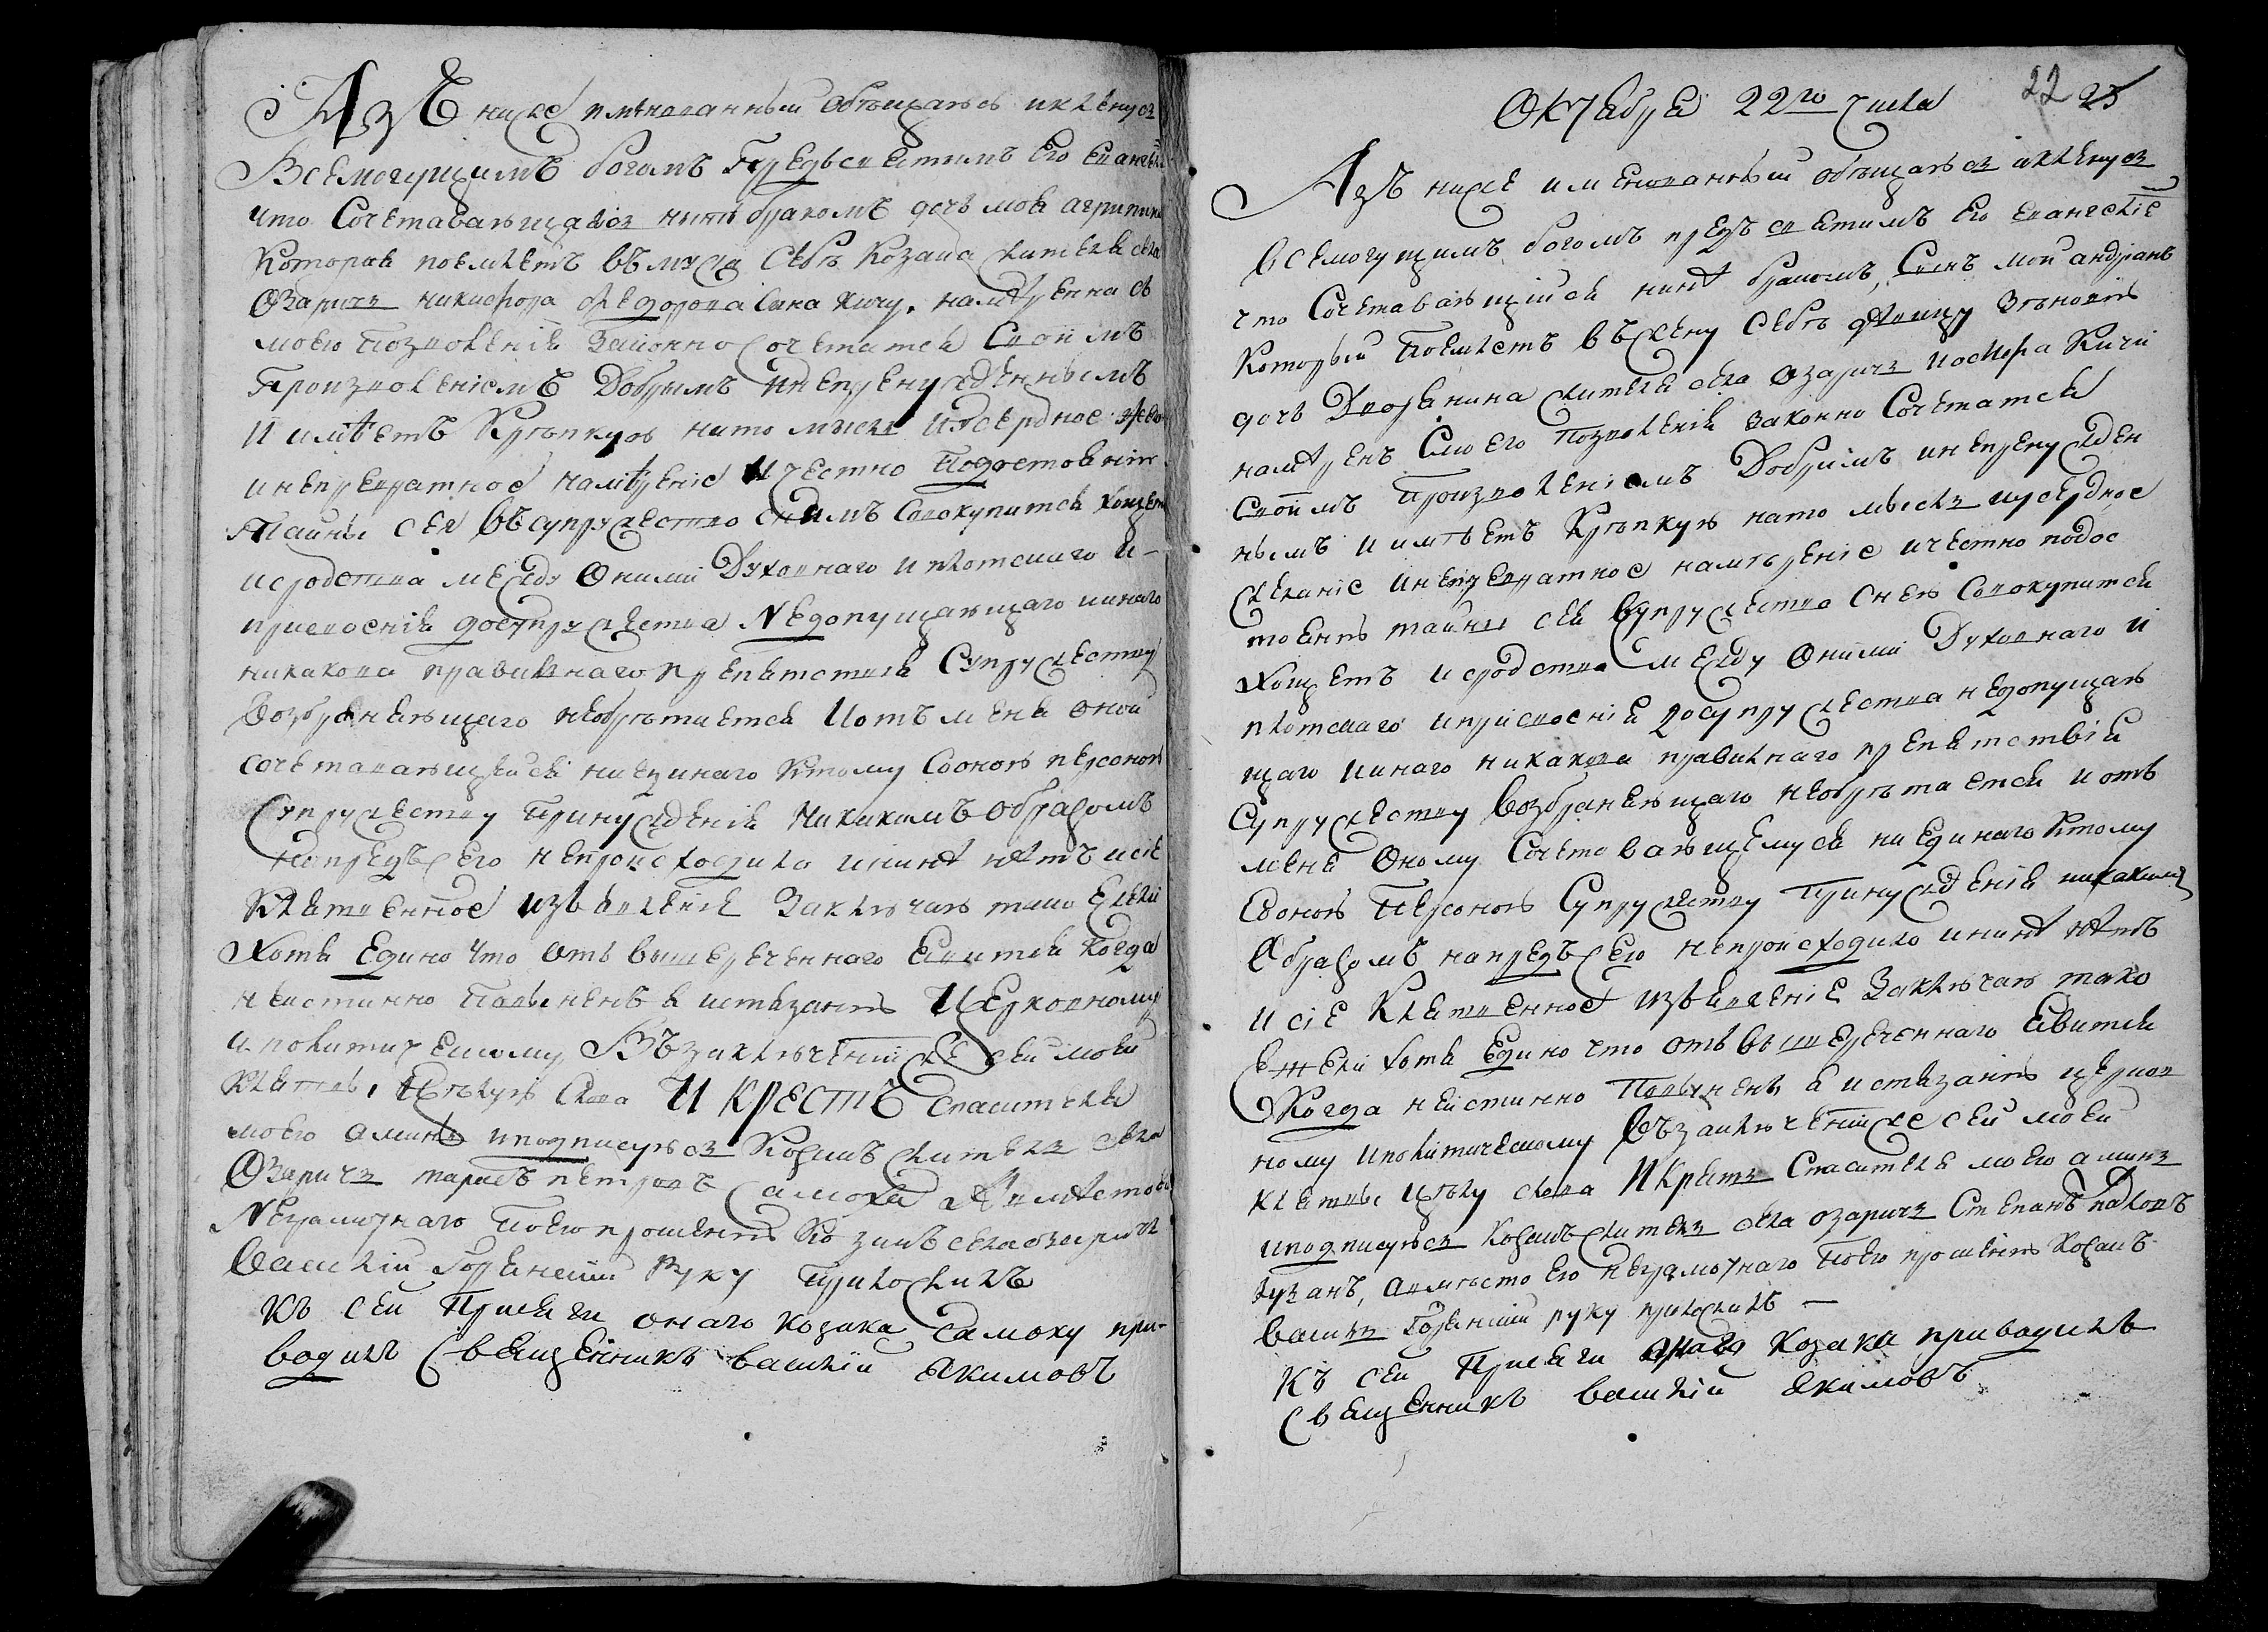 Азъ ниже имянованный обѣщаюсь и клѣнусъ
Всемогущимъ богомъ Предъсвятимъ Его Евангел
что Сочетавающаюсъ ннѣ бракомъ дочъ моя агрипина
Которая поемлетъ въ мужа Себѣ Козака жителя села
Озаричъ никифора Федорова сина Кичу. намѣренна съ
моего Позволенія Законно Сочетатся Своимъ
Произволеніемъ Добрымъ инепренужденнымъ
И имѣетъ Крѣпкую нато мысль иусердное жела
инепревратное намѣреніе И честно Подостоянію
Тайны сея въ супружество снимъ Совокупится хощетъ
исродства между Оними Духовнаго иплотскаго и-
присвоенія досупружества Nедопущающаго ииного
никакова правилнаго препятствія Супружеству
Возбраняющаго необрѣтается Иотъ мене оной
сочетавающейся ниединаго Ктому Сооною персоною
Супружеству Принужденія Никакимъ образомъ
напредъ сего непроисходило ининѣ нѣтъ исіе
Клятвенное Изъявленіе Заключаю тако Ежели
Хотя Едино что Отъ вышереченнаго Явится когда
неистинно Повиненъ я истязанію Церковному
иполитическому, Въ заключеніиже сей моей
клятвы, Цѣлую слова И КРЕСТЪ спасителя
моего аминь иподписуюсъ Козакъ житель села
Озаричъ тарасъ петровъ Самоха Авмѣсто его
Nеграмотнаго Поего прошенію Козакъ села озаричъ
Василій Горенскій Руку Приложилъ
Къ сей Присяги онаго козака Самоху при-
водилъ Священникъ василій Якимовъ
22 23
Октября 22го числа
Азъ ниже именованный обѣщаюсъ иклѣнусъ
Всемогущимъ богомъ предъ святимъ Его евангеліе
что Сочетавающійся нинѣ бракомъ, Синъ мой андріанъ
Который Поемлетъ въ жену Себѣ дѣвицу Зѣновію
дочъ Дворянина жителя села Озаричъ иосифа Кичи
намѣренъ Смоего Позволенія законно Сочетатся
Своимъ Произволеніемъ Добримъ инепренужден
нымъ и имѣетъ Крѣпкую нато мысль иусердное
желаніе инепревратное намѣреніе ичестно подос
тоянію тайны сея Всупружество Снею Совокупится
Хощетъ исродства между Оними Духовнаго и
плотскаго иприсвоенія досупружества недопущаю
щаго ииного никакова правилнаго препятствія
Супружеству Возбраняющаго необрѣтается иотъ
мене Оному Сочетовающемуся ниединаго Ктому
Сооною Персоною Супружеству Принужденія никакимъ
Образомъ напредъ сего непроисходило ининѣ нѣтъ
И сіе Клятвенное изъявленіе Заключаю тако
Ежели хотя Едино что отъ вышереченнаго Явится
Когда неистинно Повиненъ я истязанію церков
ному иполитическому Въ заключеніиже сей моей
клятвы цѣлу слова ИКрестъ Спасителя моего аминь
иподписуюсъ Козакъ житель села озаричъ Степанъ павловъ
авмѣсто его неграмотнаго Поего прошенію Козакъ
василь Горенскій руку приложилъ —
Къ сей Присяги онаго Козака приводилъ
Священникъ василій Якимовъ